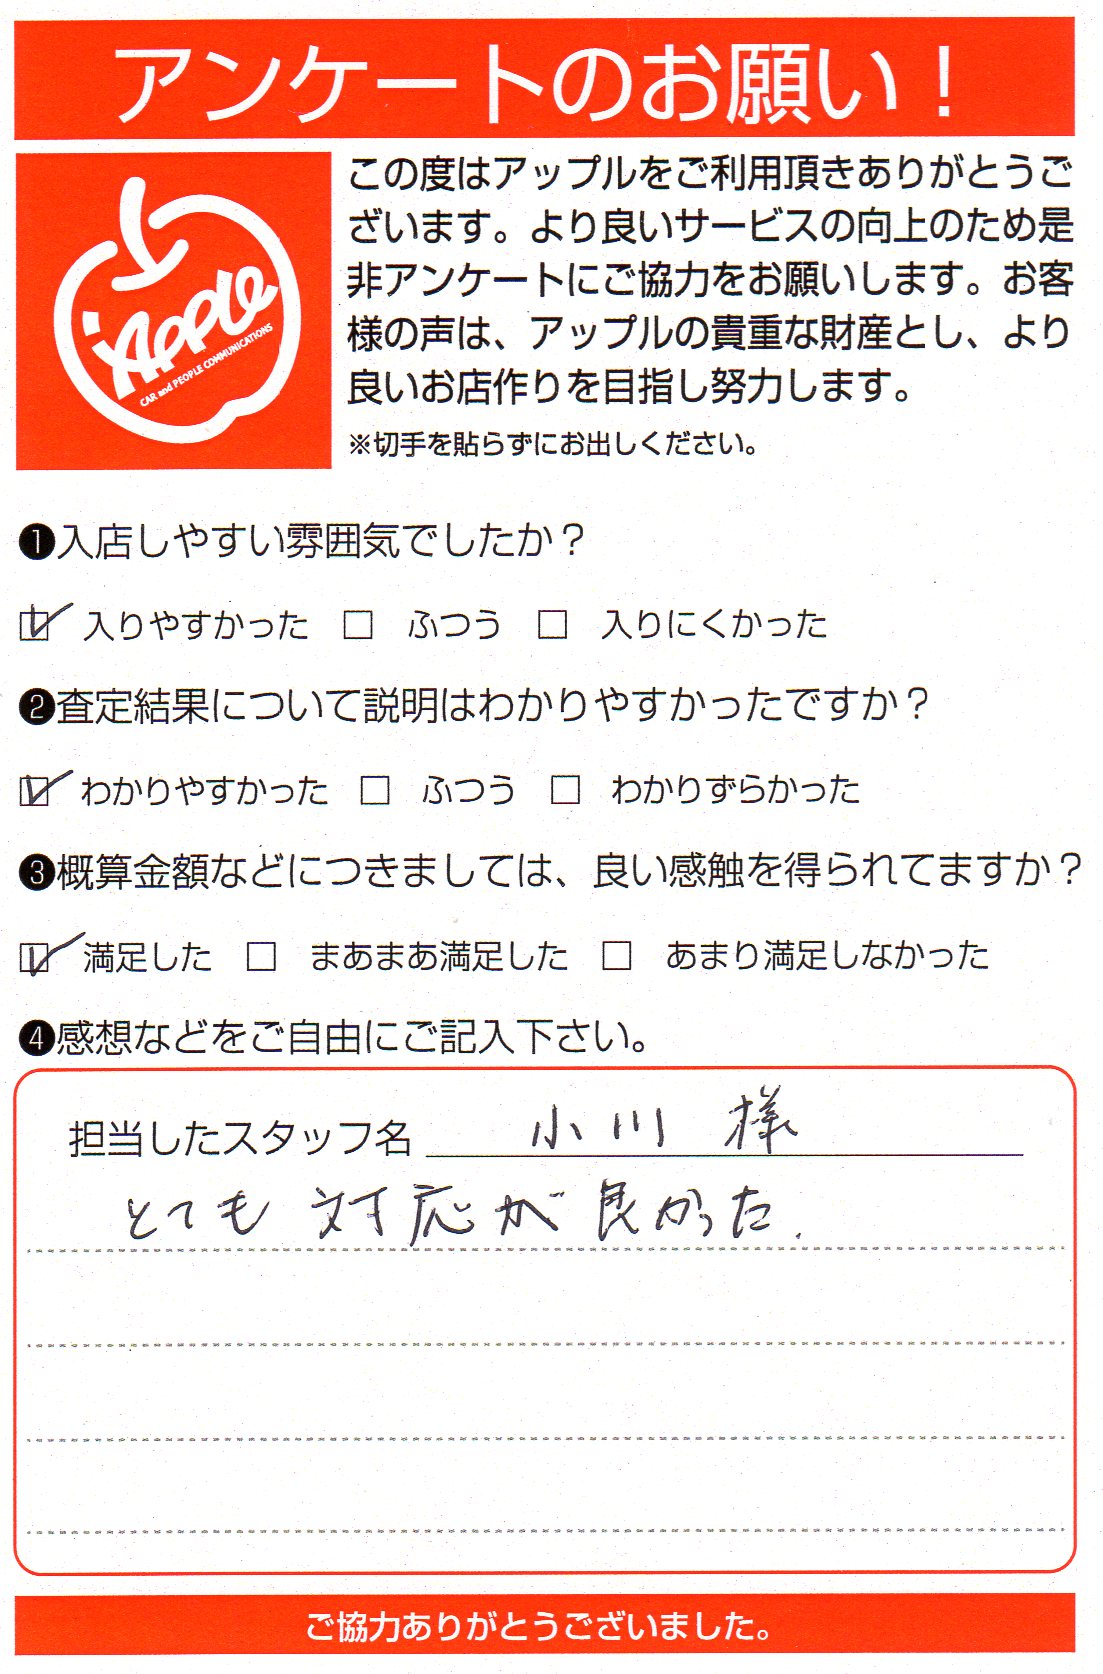 アンケートのお願い！
Apple
CAR and PEOPLE COMMUNICATIONS
この度はアップルをご利用頂きありがとうご
ざいます。より良いサービスの向上のため是
非アンケートにご協力をお願いします。お客
様の声は、アップルの貴重な財産とし、より
良いお店作りを目指し努力します。
※切手を貼らずにお出しください。
❶入店しやすい雰囲気でしたか？
☑ 入りやすかった □ ふつう □ 入りにくかった
❷査定結果について説明はわかりやすかったですか？
☑ わかりやすかった □ ふつう □ わかりずらかった
❸概算金額などにつきましては、良い感触を得られてますか？
☑ 満足した □ まあまあ満足した □ あまり満足しなかった
❹感想などをご自由にご記入下さい。
担当したスタッフ名 小川 様
とても 対応が 良かった.
ご協力ありがとうございました。